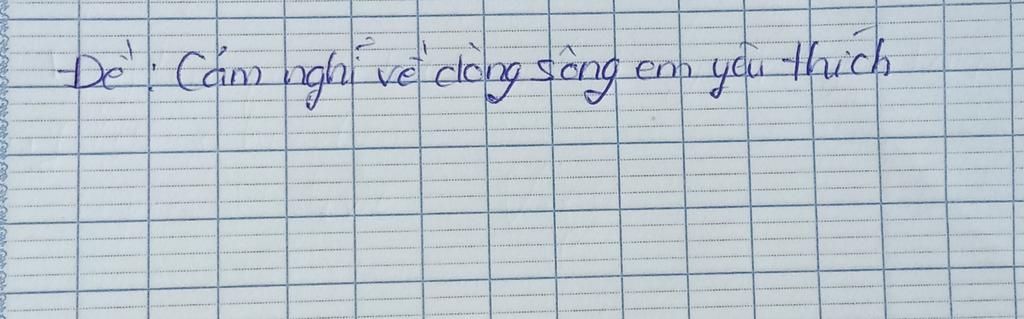 Đề: Cảm nghĩ về dòng sông em yêu thích